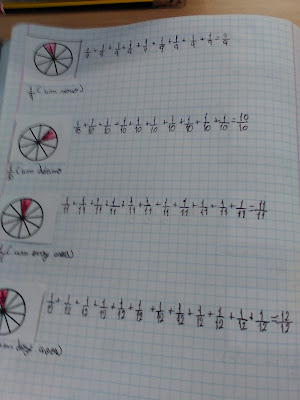 1/9 + 1/9 + 1/9 + 1/9 + 1/9 + 1/9 + 1/9 + 1/9 + 1/9 = 9/9
1/9 (um nono)
1/10 + 1/10 + 1/10 + 1/10 + 1/10 + 1/10 + 1/10 + 1/10 + 1/10 + 1/10 = 10/10
(um décimo
1/11 + 1/11 + 1/11 + 1/11 + 1/11 + 1/11 + 1/11 + 1/11 + 1/11 + 1/11 + 1/11 = 11/11
(um onze avos)
1/12 + 1/12 + 1/12 + 1/12 + 1/12 + 1/12 + 1/12 + 1/12 + 1/12 + 1/12 + 1/12 + 1/12 = 12/12
um doze avos)